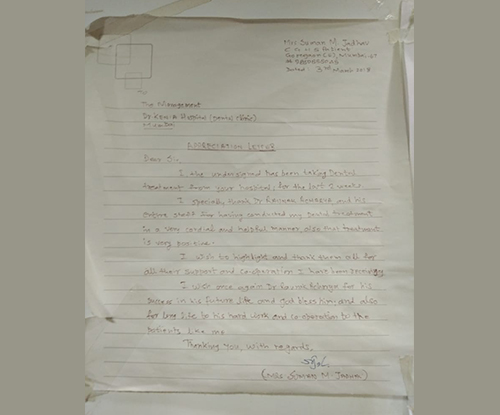 Mrs Suman M. Jadhav
C G H S Patient
Goregaon (E), Mumbai
Dated: 3rd March 2018
The Management
Hospital (Dental Clinic)
Mumbai
APPRECIATION LETTER
Dear Sir,
I the undersigned has been taking Dental
treatment from your hospital, for the last 5 weeks.
I specially thank Dr and his
entire staff for having conducted my Dental treatment
in a very cordial and helpful manner, also that treatment
is very positive.
I wish to highlight and thank them all for
all their support and co-operation I have been receiving
I wish once again Dr. for his
success in his future life and God bless him, and also
for long life to his hard work and co-operation to the
patients like me
Thanking you, with regards,
(Mrs Suman M. Jadhav)